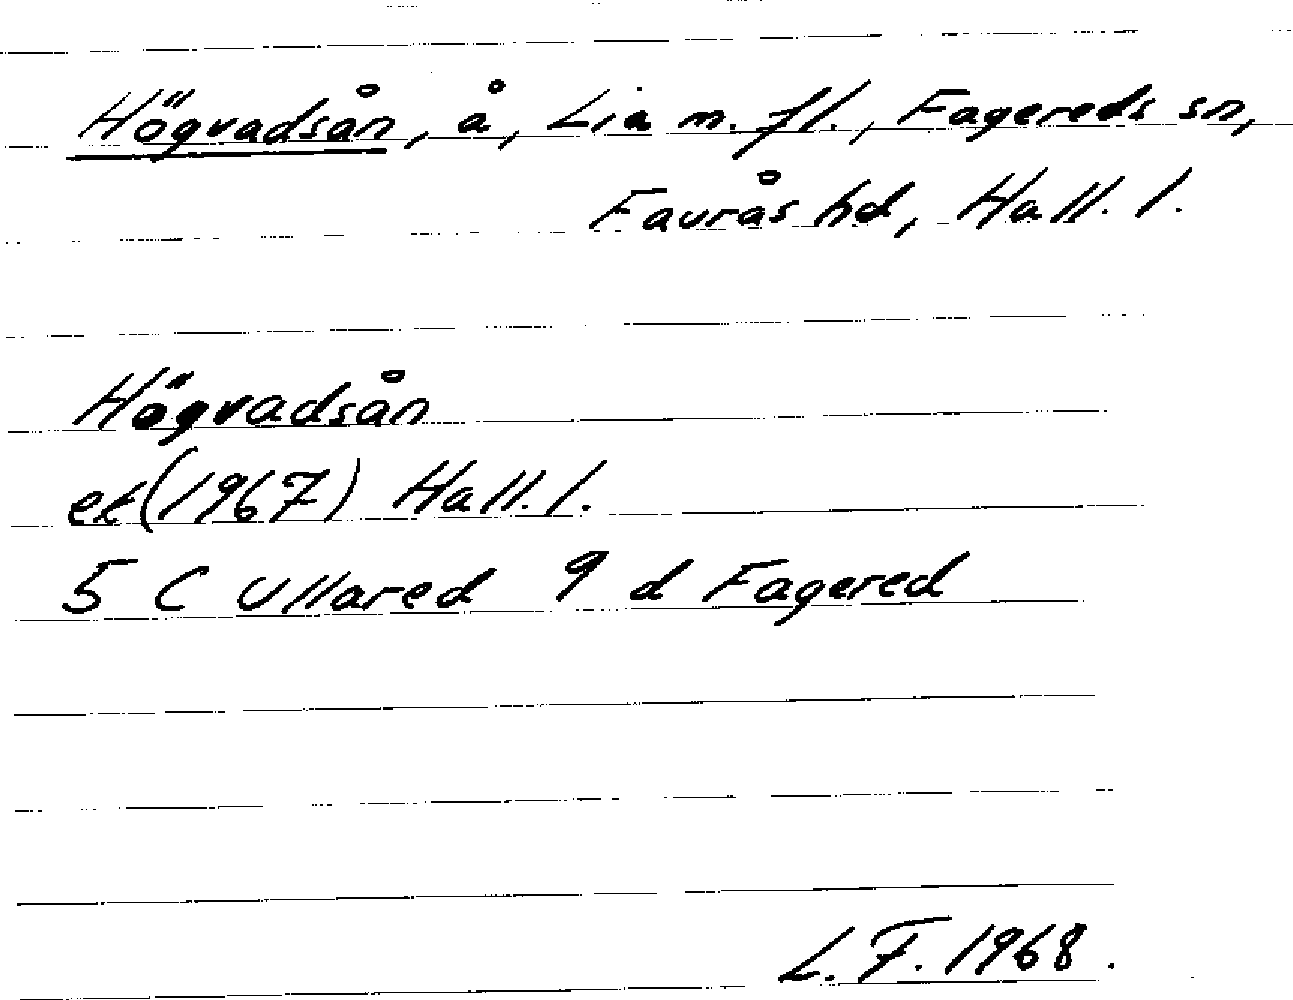 Högvadsån, å, Lia m. fl., Fagereds sn,
Faurås hd, Hall. l.
Högvadsån
ek (1967) Hall. l.
5 C Ullared 9 d Fagered
L. F. 1968.